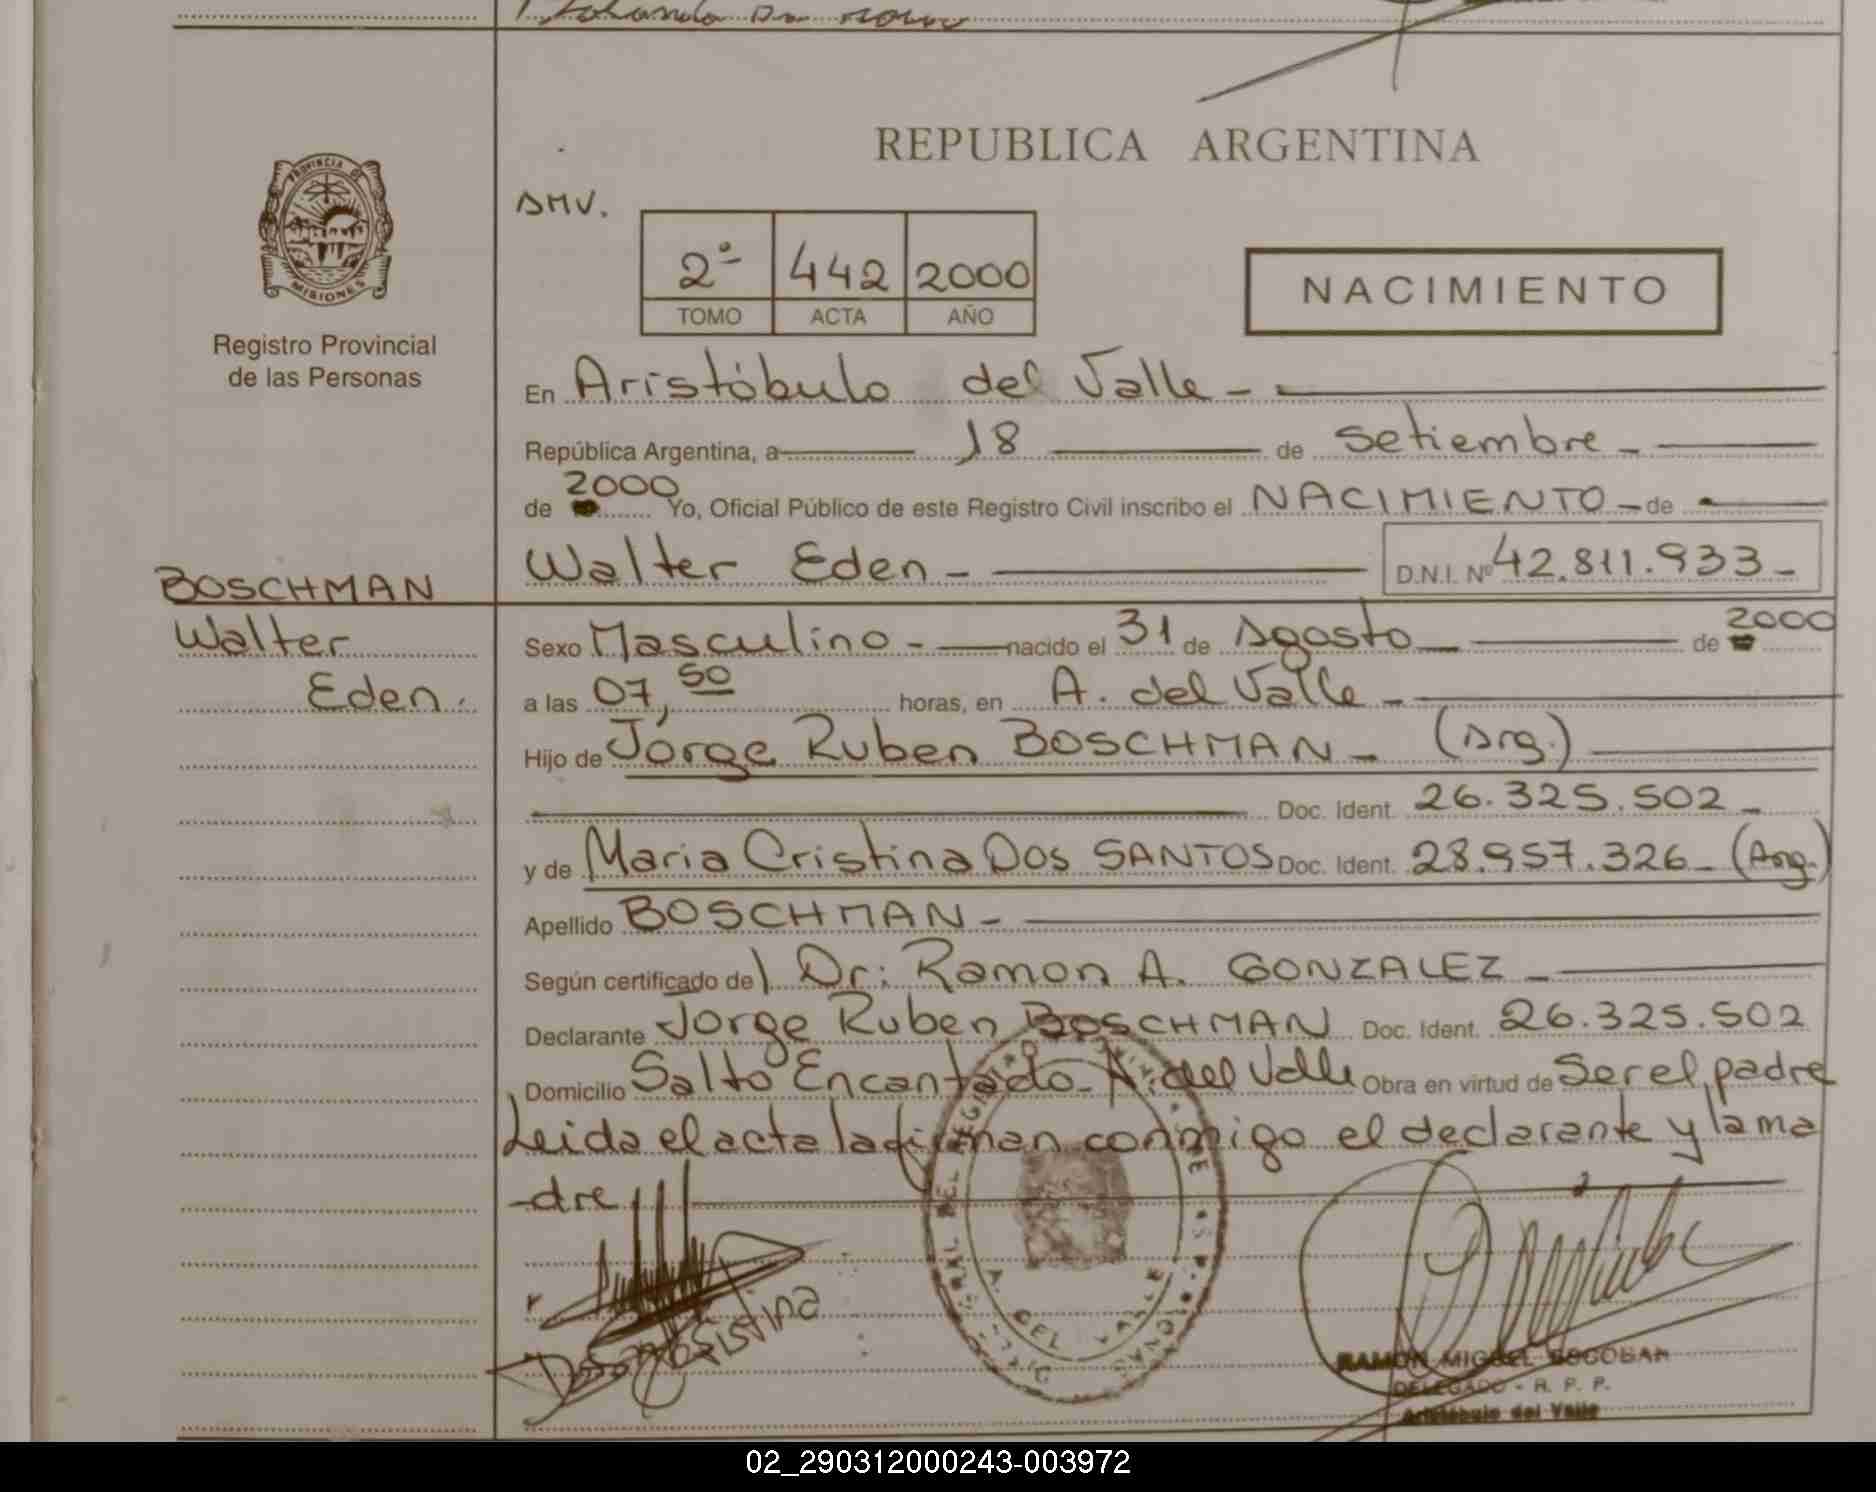 PROVINCIA DE
MISIONES
Registro Provincial
de las Personas
BOSCHMAN
Walter
Eden.
REPUBLICA ARGENTINA
SMV.
2º 442 2000
TOMO ACTA AÑO
NACIMIENTO
En Aristóbulo del Valle -
República Argentina, a 18 de setiembre -
de 2000 Yo, Oficial Público de este Registro Civil inscribo el NACIMIENTO - de
Walter Eden - D.N.I. Nº 42.811.933 -
Sexo Masculino - nacido el 31 de Agosto - de 2000
a las 07,50 horas, en A. del Valle -
Hijo de Jorge Ruben BOSCHMAN - (Arg.)
Doc. Ident. 26.325.502 -
y de Maria Cristina Dos SANTOS Doc. Ident. 28.957.326 - (Arg.)
Apellido BOSCHMAN -
Según certificado de Dr: Ramon A. GONZALEZ -
Declarante Jorge Ruben BOSCHMAN Doc. Ident. 26.325.502
Domicilio Salto Encantado - A. del Valle Obra en virtud de Ser el padre
Leida el acta la firman conmigo el declarante y la ma
-dre
A. DEL VALLE
RAMON MIGUEL ESCOBAR
DELEGADO - R. P. P.
Aristóbulo del Valle
02_290312000243-003972